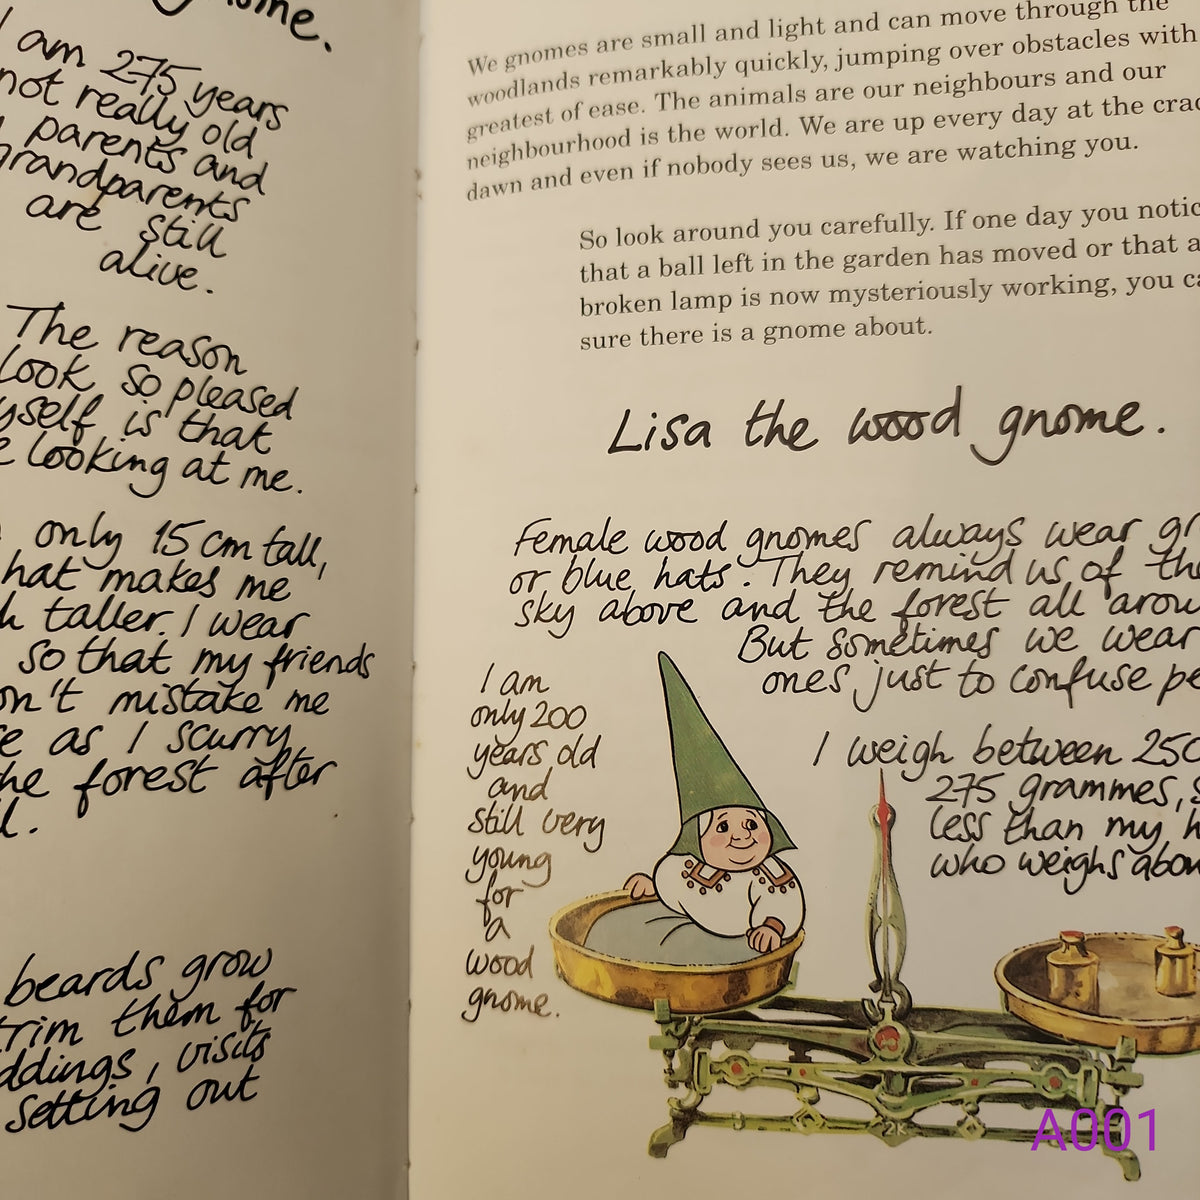 gnome.
I am 275 years
not really old
parents and
grandparents
are still
alive.
The reason
look so pleased
is that
looking at me.
only 15 cm tall,
hat makes me
taller. I wear
so that my friends
mistake me
as I scurry
forest after
beards grow
trim them for
visits
setting out
We gnomes are small and light and can move through the
woodlands remarkably quickly, jumping over obstacles with
greatest of ease. The animals are our neighbours and our
neighbourhood is the world. We are up every day at the
dawn and even if nobody sees us, we are watching you.
So look around you carefully. If one day you
that a ball left in the garden has moved or that a
broken lamp is now mysteriously working, you
sure there is a gnome about.
Lisa the wood gnome.
Female wood gnomes always wear
or blue hats. They remind us of the
sky above and the forest all
But sometimes we wear
ones just to confuse
I am
only 200
years old
and
still very
young
for
a
wood
gnome.
I weigh between
275 grammes,
less than my
who weighs
2K
A001